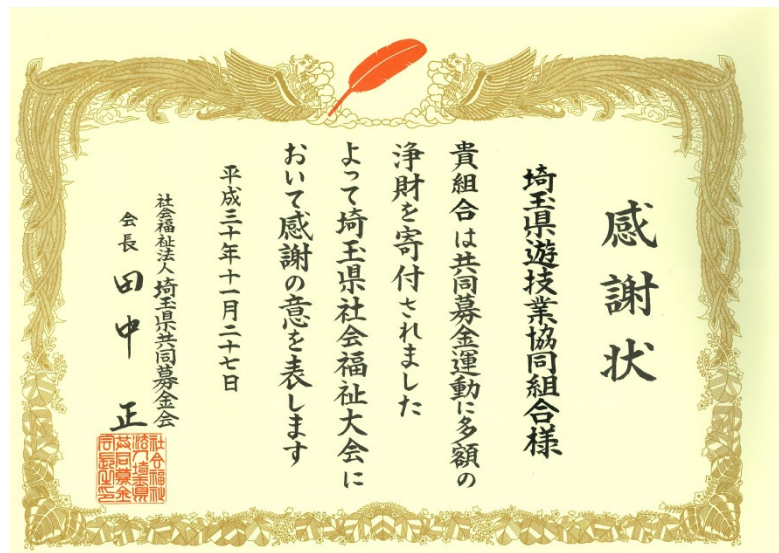 感謝状
埼玉県遊技業協同組合様
貴組合は共同募金運動に多額の
浄財を寄付されました
よって埼玉県社会福祉大会に
おいて感謝の意を表します
平成三十年十一月二十七日
社会福祉法人埼玉県共同募金会
会長 田中 正
社会福祉
法人埼玉県
共同募金
会長之印